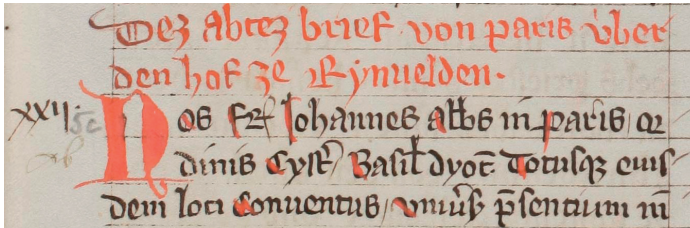 Dez abtez brief von paris vber
den hof ze Rynuelden.
XXII. Nos fr̄ Johannes abbs in paris or
dinis Cyst̄ Basil̄ dyoc̄ Totusqꝫ eius
dem loci Conuentus / vniu̾s p̄sentium in